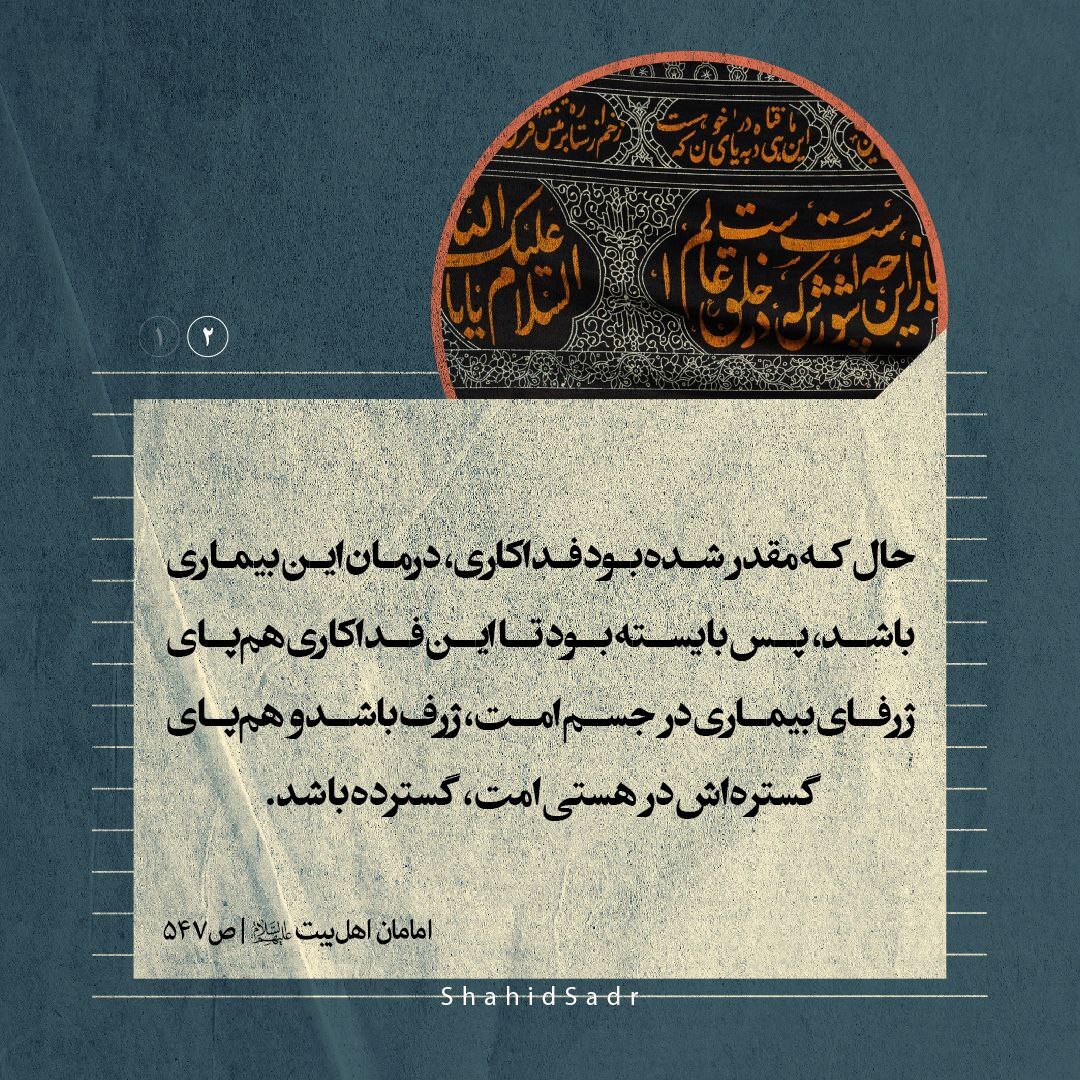 باز این چه شورش است که در خلق عالم است
السلام علیک یا ابا
۱ ۲
حال که مقدر شده بود فداکاری، درمان این بیماری
باشد، پس بایسته بود تا این فداکاری هم‌پای
ژرفای بیماری در جسم امت، ژرف باشد و هم‌پای
گستره‌اش در هستی امت، گسترده باشد.
امامان اهل‌بیت علیهم‌السلام | ص۵۴۷
ShahidSadr